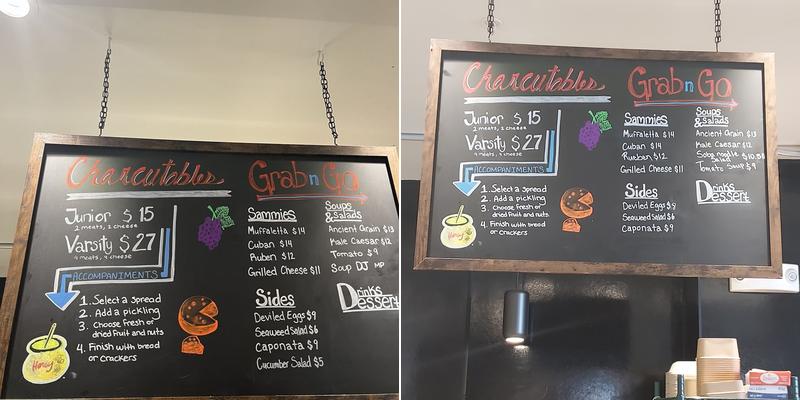 Charcutables
Junior $15
2 meats, 2 cheese
Varsity $27
4 meats, 4 cheese
ACCOMPANIMENTS
1. Select a spread
2. Add a pickling
3. Choose fresh or
dried fruit and nuts
4. Finish with bread
or crackers
Honey
Grab n Go
Sammies
Muffaletta $14
Cuban $14
Ruben $12
Grilled Cheese $11
Sides
Deviled Eggs $9
Seaweed Salad $6
Caponata $9
Cucumber Salad $5
Soups
& Salads
Ancient Grain $13
Kale Caesar $12
Tomato $9
Soup DJ MP
Drinks
Dessert
Charcutables
Junior $15
2 meats, 2 cheese
Varsity $27
4 meats, 4 cheese
ACCOMPANIMENTS
1. Select a spread
2. Add a pickling
3. Choose fresh or
dried fruit and nuts
4. Finish with bread
or crackers
Honey
Grab n Go
Sammies
Muffaletta $14
Cuban $14
Rueben $12
Grilled Cheese $11
Sides
Deviled Eggs $9
Seaweed Salad $6
Caponata $9
Soups
& Salads
Ancient Grain $13
Kale Caesar $12
Soba noodle $10.50
Salad
Tomato Soup $9
Drinks
Dessert